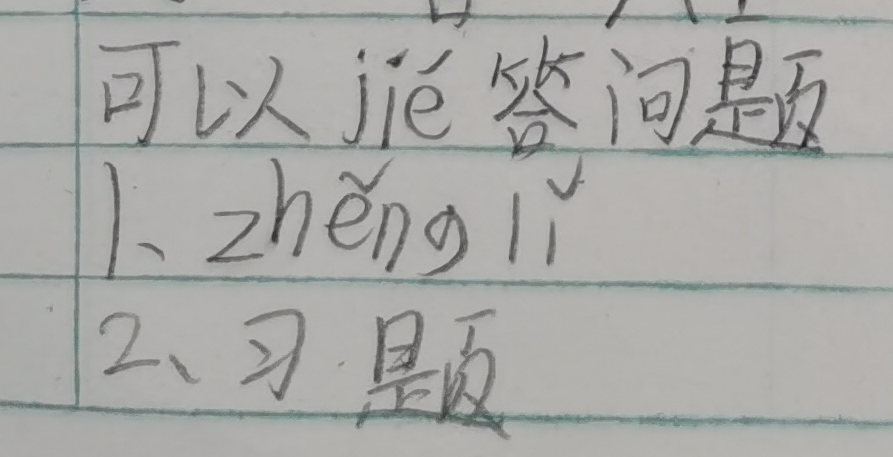 可以jiě答问题
1、zhěnglǐ
2、习题